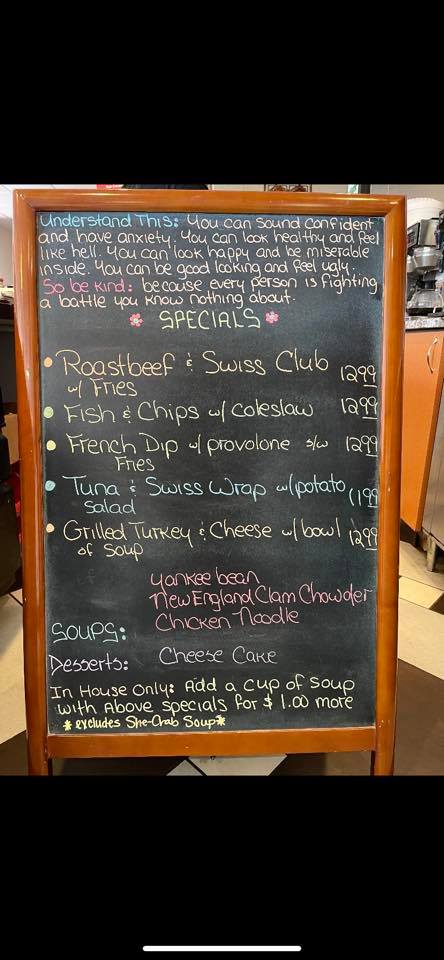 Understand This: You can sound confident
and have anxiety. You can look healthy and feel
like hell. You can look happy and be miserable
inside. You can be good looking and feel ugly.
So be kind: because every person is fighting
a battle you know nothing about.
SPECIALS
Roastbeef & Swiss Club 12.99
w/ Fries
Fish & Chips w/ coleslaw 12.99
French Dip w/ provolone s/w 12.99
Fries
Tuna & Swiss Wrap w/potato 11.99
Salad
Grilled Turkey & Cheese w/ bowl 12.99
of soup
Yankee bean
New England Clam Chowder
Chicken Noodle
Soups:
Desserts: Cheese Cake
In House Only: Add a cup of soup
with Above specials for $ 1.00 more
*excludes She-Crab Soup*